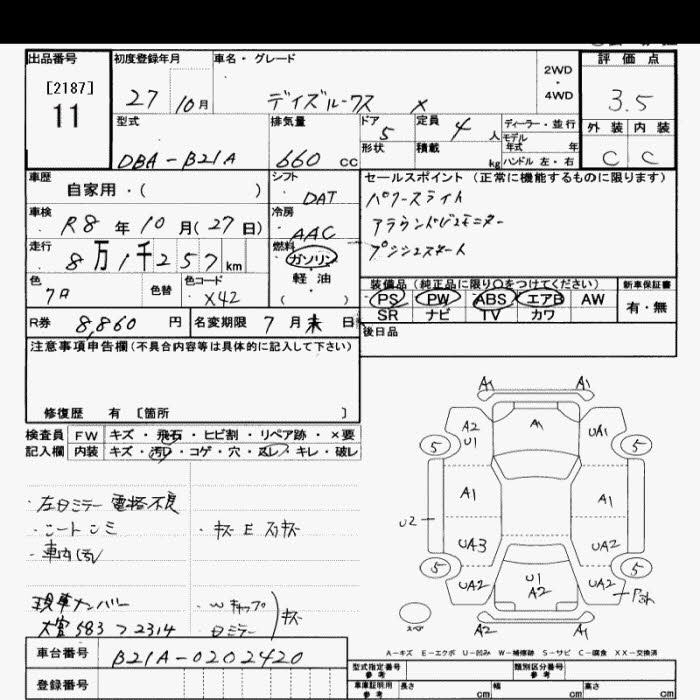 出品番号 初度登録年月 車名・グレード 評価点
[2187]
11
27 10月 デイズルークス X
2WD
・
4WD
3.5
型式 排気量 ドア 定員 ディーラー・並行
外装 内装
DBA-B21A 660 cc 5 4人
モデル年式 年
形状 積載 kg ハンドル 左・右
C C
車歴 シフト セールスポイント (正常に機能するものに限ります)
自家用・( ) DAT
パワースライド
車検 冷房
R8年10月(27日) AAC
アラウンドビューモニター
走行 燃料
8万1千257km ガソリン
プッシュスタート
色 色替 色コード 軽油
・( )
X42
装備品 (純正品に限り○をつけてください) 新車保証書
PS PW ABS エアB AW 有・無
SR ナビ TV カワ
R券 8,860円 名変期限 7月末日
後日品
注意事項申告欄(不具合内容等は具体的に記入して下さい)
修復歴 有 〔箇所 〕
検査員 FW キズ・飛石・ヒビ割・リペア跡・×要
記入欄 内装 キズ・汚レ・コゲ・穴・スレ・キレ・破レ
左日ミラー 電格不良
・シートシミ ・キズ E スリキズ
・車内汚れ
現車ナンバー ・Wキャップ
大宮583つ2314 日ミラー キズ
A1 A1
A2 A1 UA1
U1
5 5
A1 A1
U2
UA3 UA2
5 5
UA2 U1 UA2
A2
A2 A1
A-キズ E-エクボ U-凹み W-補修跡 S-サビ C-腐食 XX-交換済
車台番号 B21A-0202420
登録番号
型式指定番号 参考 類別区分番号 参考
車庫証明用 参考 長さ cm 幅 cm 高さ cm